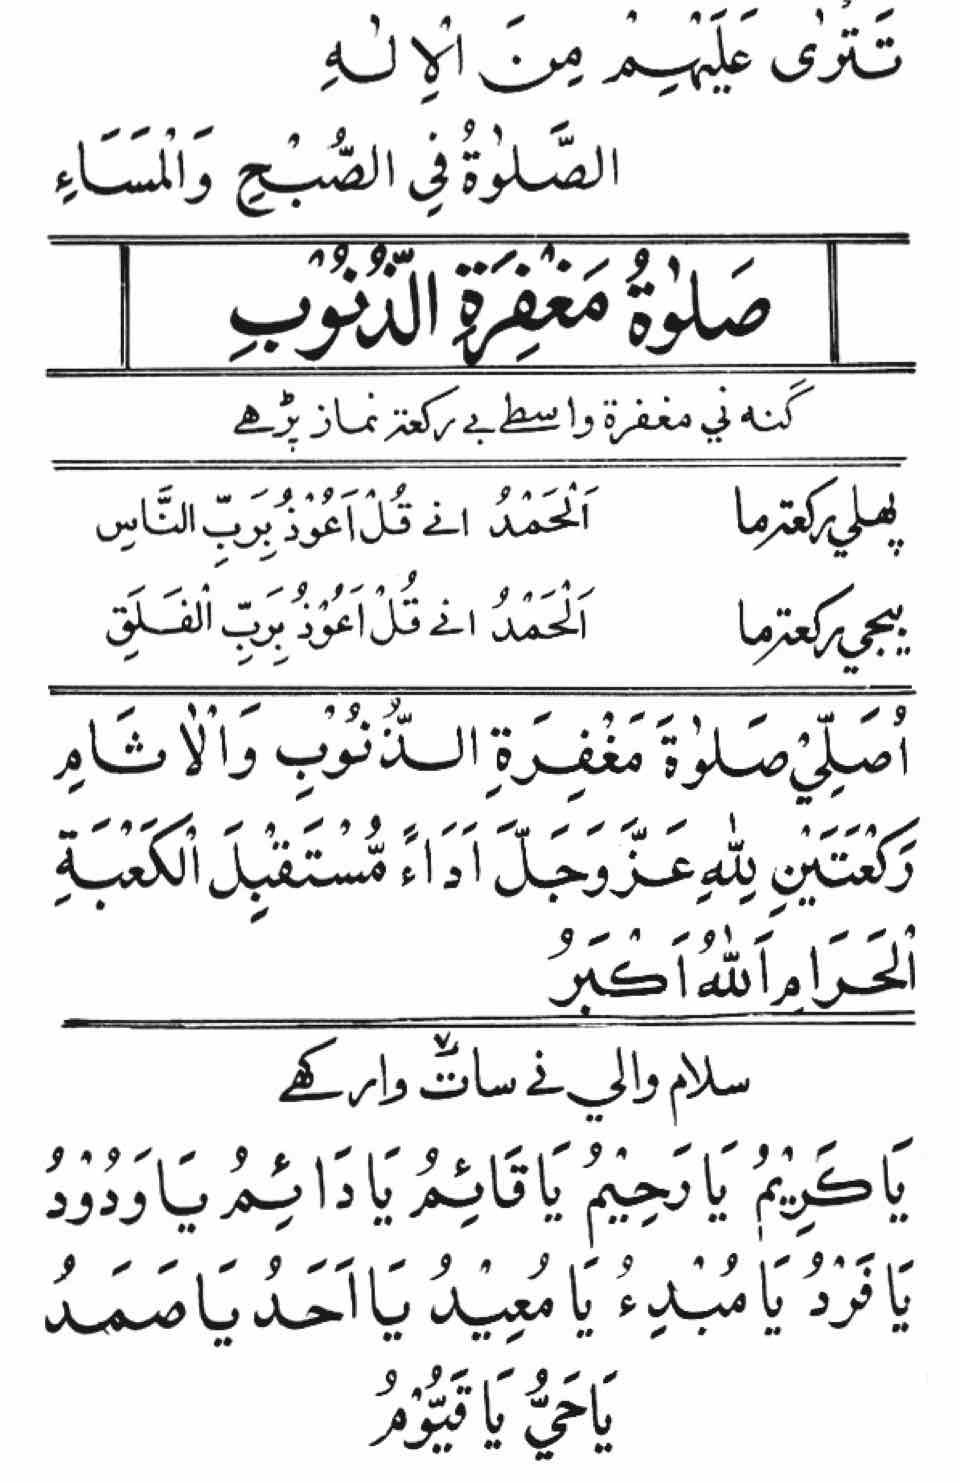 تَتْرٰى عَلَيْهِمْ مِنَ الْاِلٰهِ
الصَّلوٰةُ فِي الصُّبْحِ وَالْمَسَاءِ
صَلوٰةُ مَغْفِرَةِ الذُّنُوْبِ
گنه ني مغفرة واسطے بے ركعتر نماز پڑھے
پهلي ركعتر ما اَلْحَمْدُ انے قُلْ اَعُوْذُ بِرَبِّ النَّاسِ
بيجي ركعتر ما اَلْحَمْدُ انے قُلْ اَعُوْذُ بِرَبِّ الْفَلَقِ
اُصَلِّيْ صَلوٰةَ مَغْفِرَةِ الذُّنُوْبِ وَالْاٰثَامِ
رَكْعَتَيْنِ لِلّٰهِ عَزَّ وَجَلَّ اَدَاءً مُّسْتَقْبِلَ الْكَعْبَةِ
الْحَرَامِ اَللّٰهُ اَكْبَرُ
سلام والي نے سات٧ وار كهے
يَا كَرِيْمُ يَا رَحِيْمُ يَا قَائِمُ يَا دَائِمُ يَا وَدُوْدُ
يَا فَرْدُ يَا مُبْدِءُ يَا مُعِيْدُ يَا اَحَدُ يَا صَمَدُ
يَا حَيُّ يَا قَيُّوْمُ